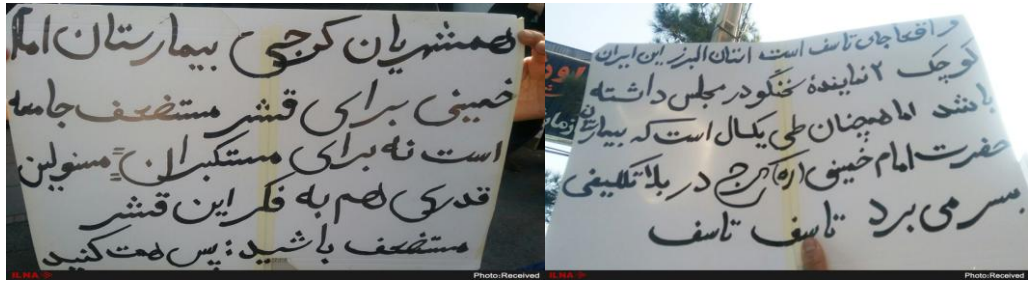 همشهریان کرجی بیمارستان امام
خمینی برای قشر مستضعف جامعه
است نه برای مستکبران = مسئولین
قدری هم به فکر این قشر
مستضعف باشید؛ پس همت کنید
ILNA
Photo:Received
واقعا جای تاسف است استان البرز این ایران
کوچک ۲ نماینده سخنگو در مجلس داشته
باشد اما همچنان طی یکسال است که بیمارستان
حضرت امام خمینی (ره) کرج در بلاتکلیفی
بسر می برد تاسف تاسف
ILNA
Photo:Received